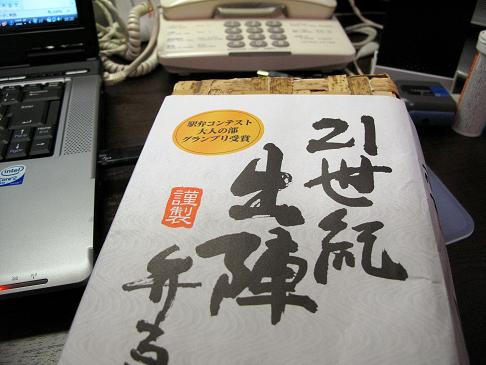 駅弁コンテスト
大人の部
グランプリ受賞
21世紀
出陣
弁当
謹製
intel